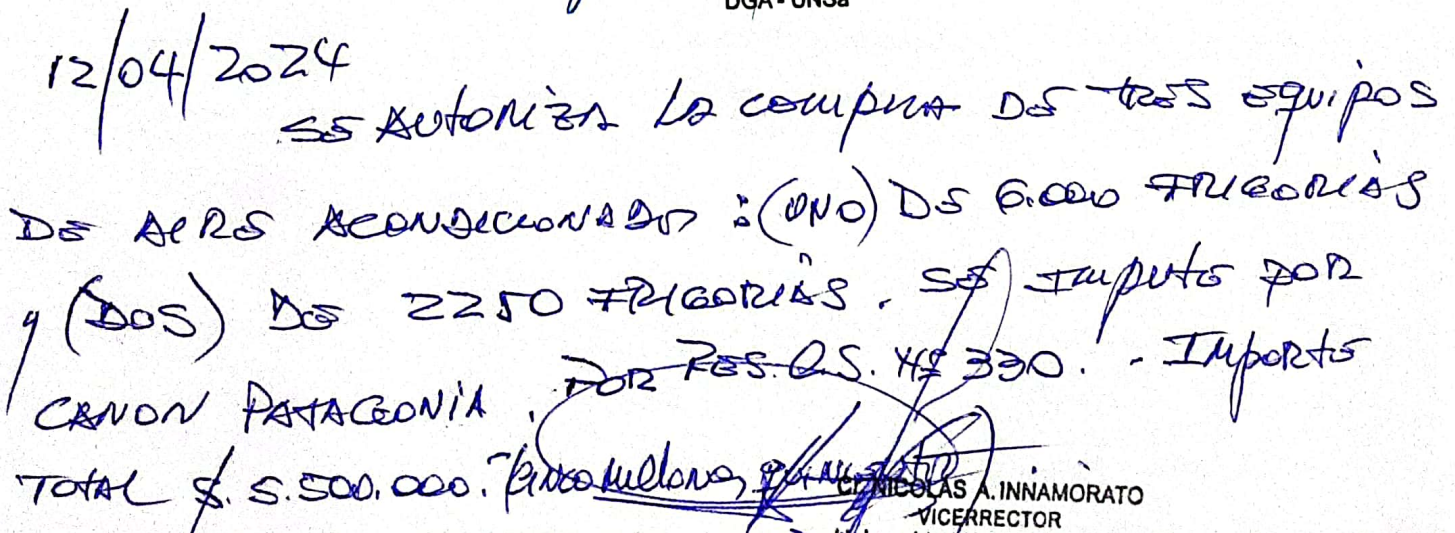 DGA - UNSa
12/04/2024
SE AUTORIZA La compra DE tres equipos
DE AIRE ACONDICIONADO : (UNO) DE 6.000 FRIGORIAS
y (DOS) DE 2250 FRIGORIAS. SE Imputo POR
CANON PATAGONIA. POR RES. CS. Nº 330. - Importe
TOTAL $. 5.500.000.- (cinco millones quinientos
NICOLÁS A. INNAMORATO
VICERRECTOR